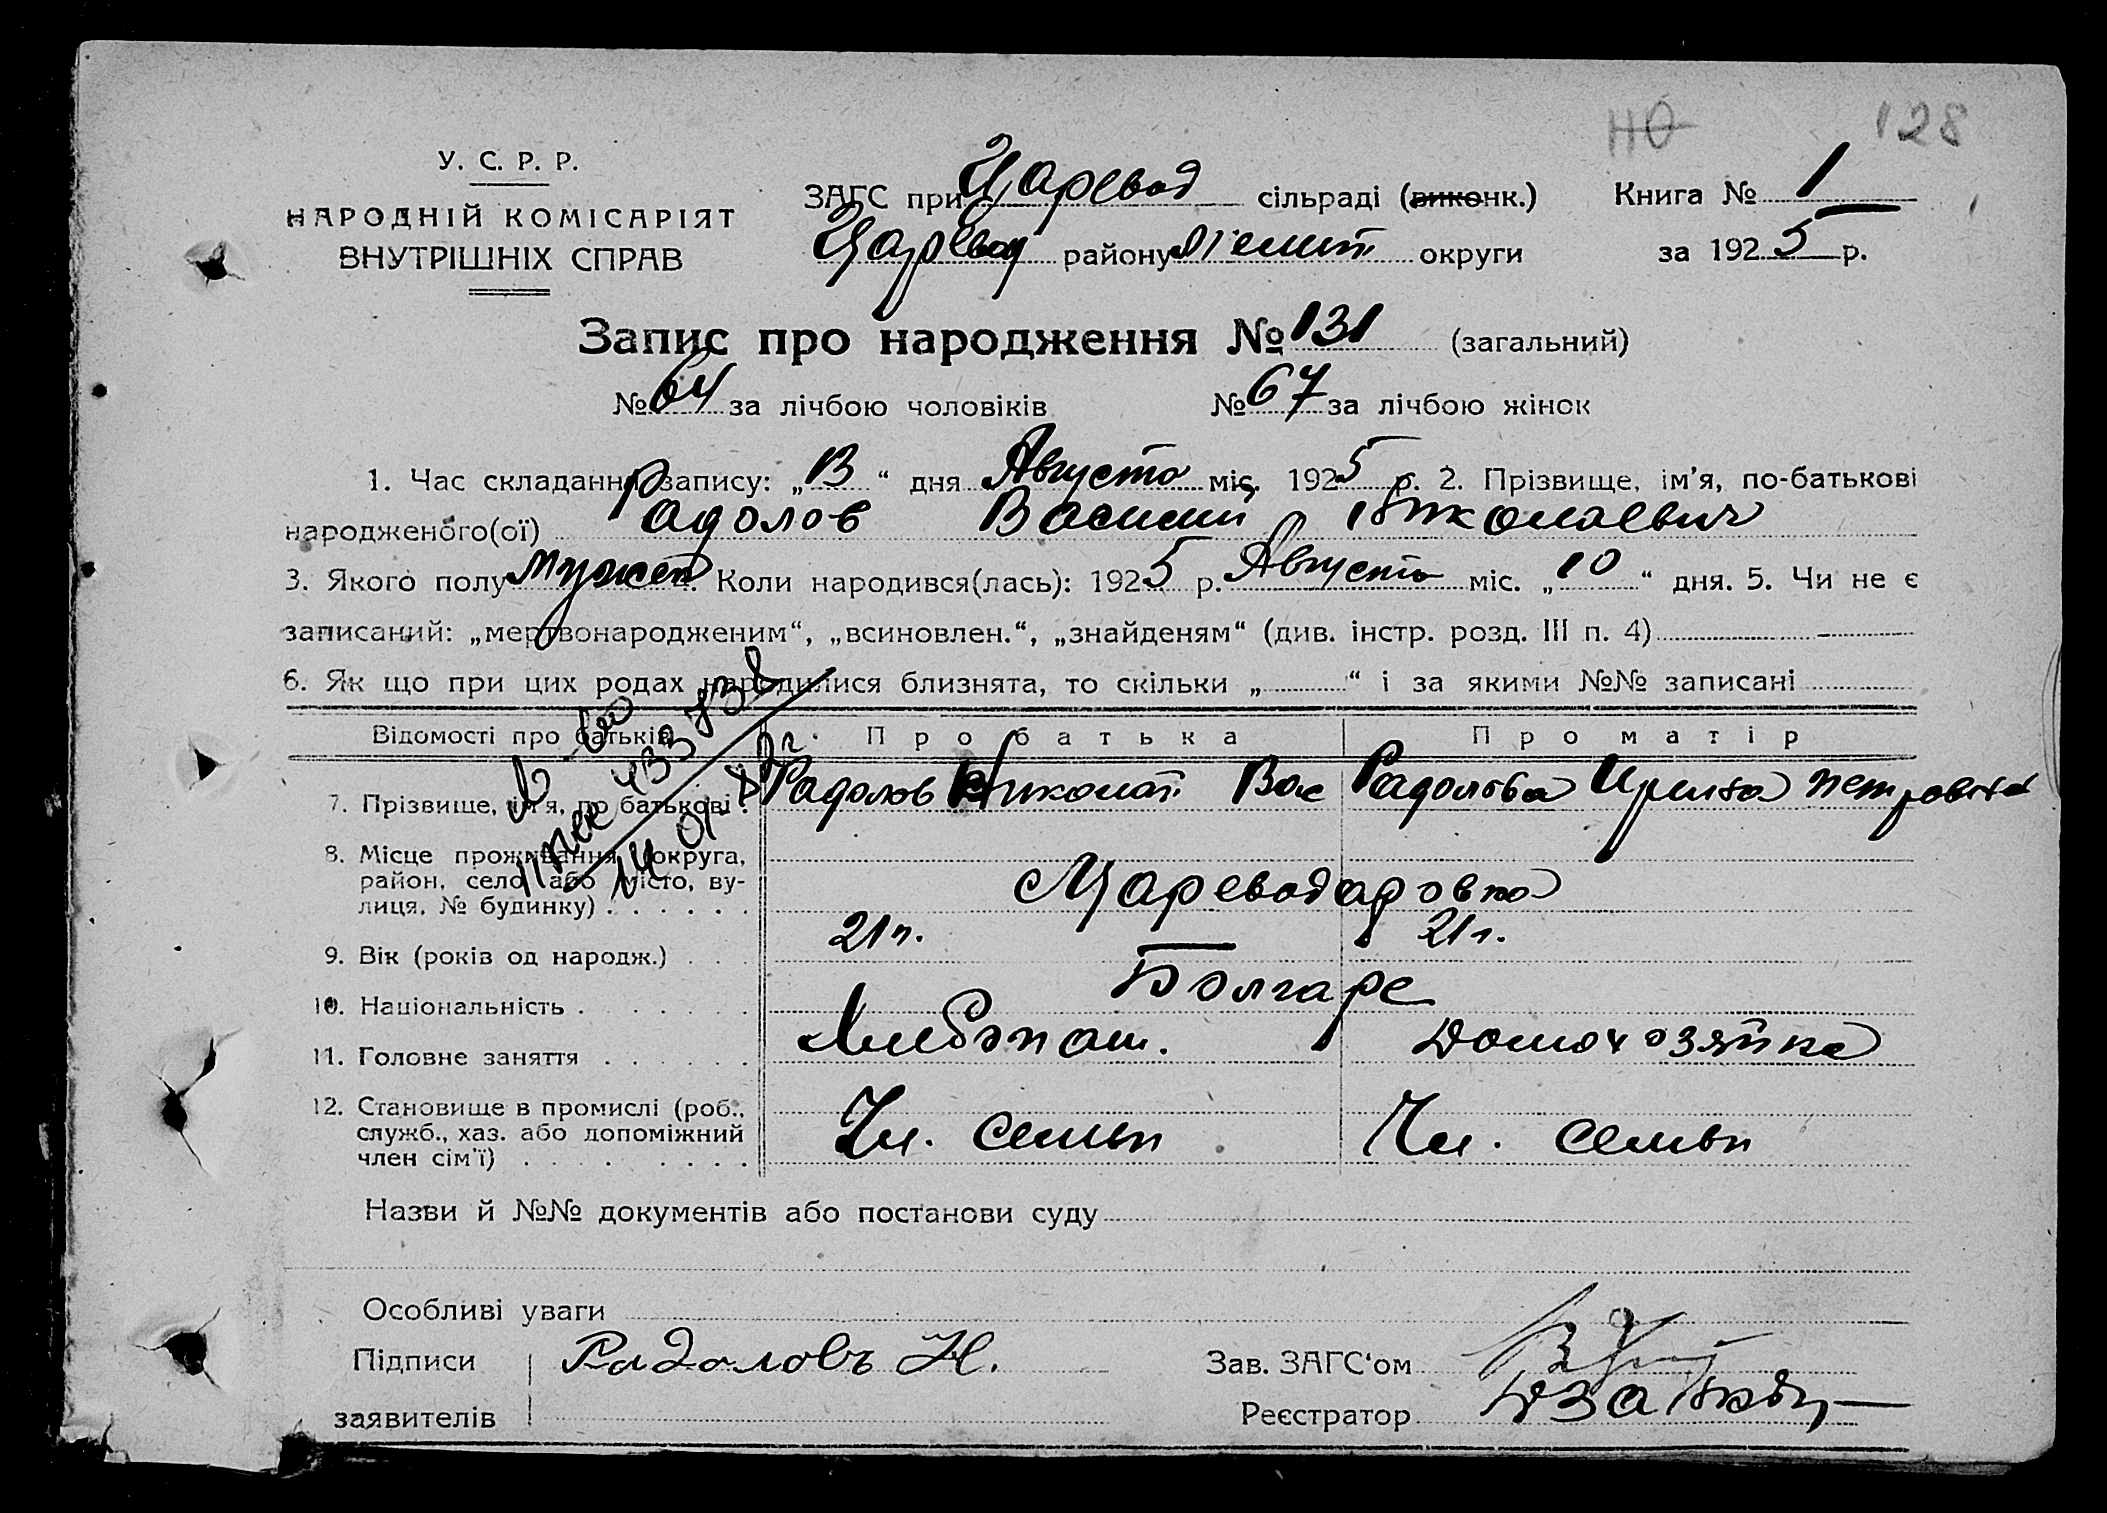 НО 128
У. С. Р. Р.
НАРОДНІЙ КОМІСАРІЯТ
ВНУТРІШНІХ СПРАВ
ЗАГС при Царевод сільраді (виконк.) Книга № 1
Царевод району Мелит округи за 1925 р.
Запис про народження № 131 (загальний)
№ 64 за лічбою чоловіків № 67 за лічбою жінок
1. Час складання запису: „13“ дня Августа міс. 1925 р. 2. Прізвище, ім'я, по-батькові
народженого(ої) Радолов Василий Николаевич
3. Якого полу мужск 4. Коли народився(лась): 1925 р. Августа міс. „10“ дня. 5. Чи не є
записаний: „мертвонародженим“, „всиновлен.“, „знайденям“ (див. інстр. розд. III п. 4)
6. Як що при цих родах народилися близнята, то скільки „ “ і за якими №№ записані
Відомості про батьків Про батька Про матір
7. Прізвище, ім'я, по батькові Радолов Николай Вас Радолова Ирина Петровна
8. Місце проживання (округа,
район, село або місто, ву-
лиця, № будинку) Цареводаровка
9. Вік (років од народж.) 21 г. 21 г.
10. Національність Болгаре
11. Головне заняття Хлебопаш. Домохозяйка
12. Становище в промислі (роб.,
служб., хаз. або допоміжний
член сім'ї) Чл. семьи Чл. семьи
Назви й №№ документів або постанови суду
Особливі уваги
Підписи Радоловъ Н. Зав. ЗАГС'ом
заявителів Реєстратор